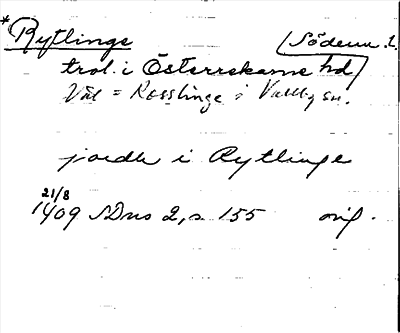 *Rytlinge [Söderm. l.]
trol. i Österrekarne hd
Väl = Rosslinge i Vallby sn.
jordh i Rytlinge
21/8
1409 SDns 2, s 155 orig.